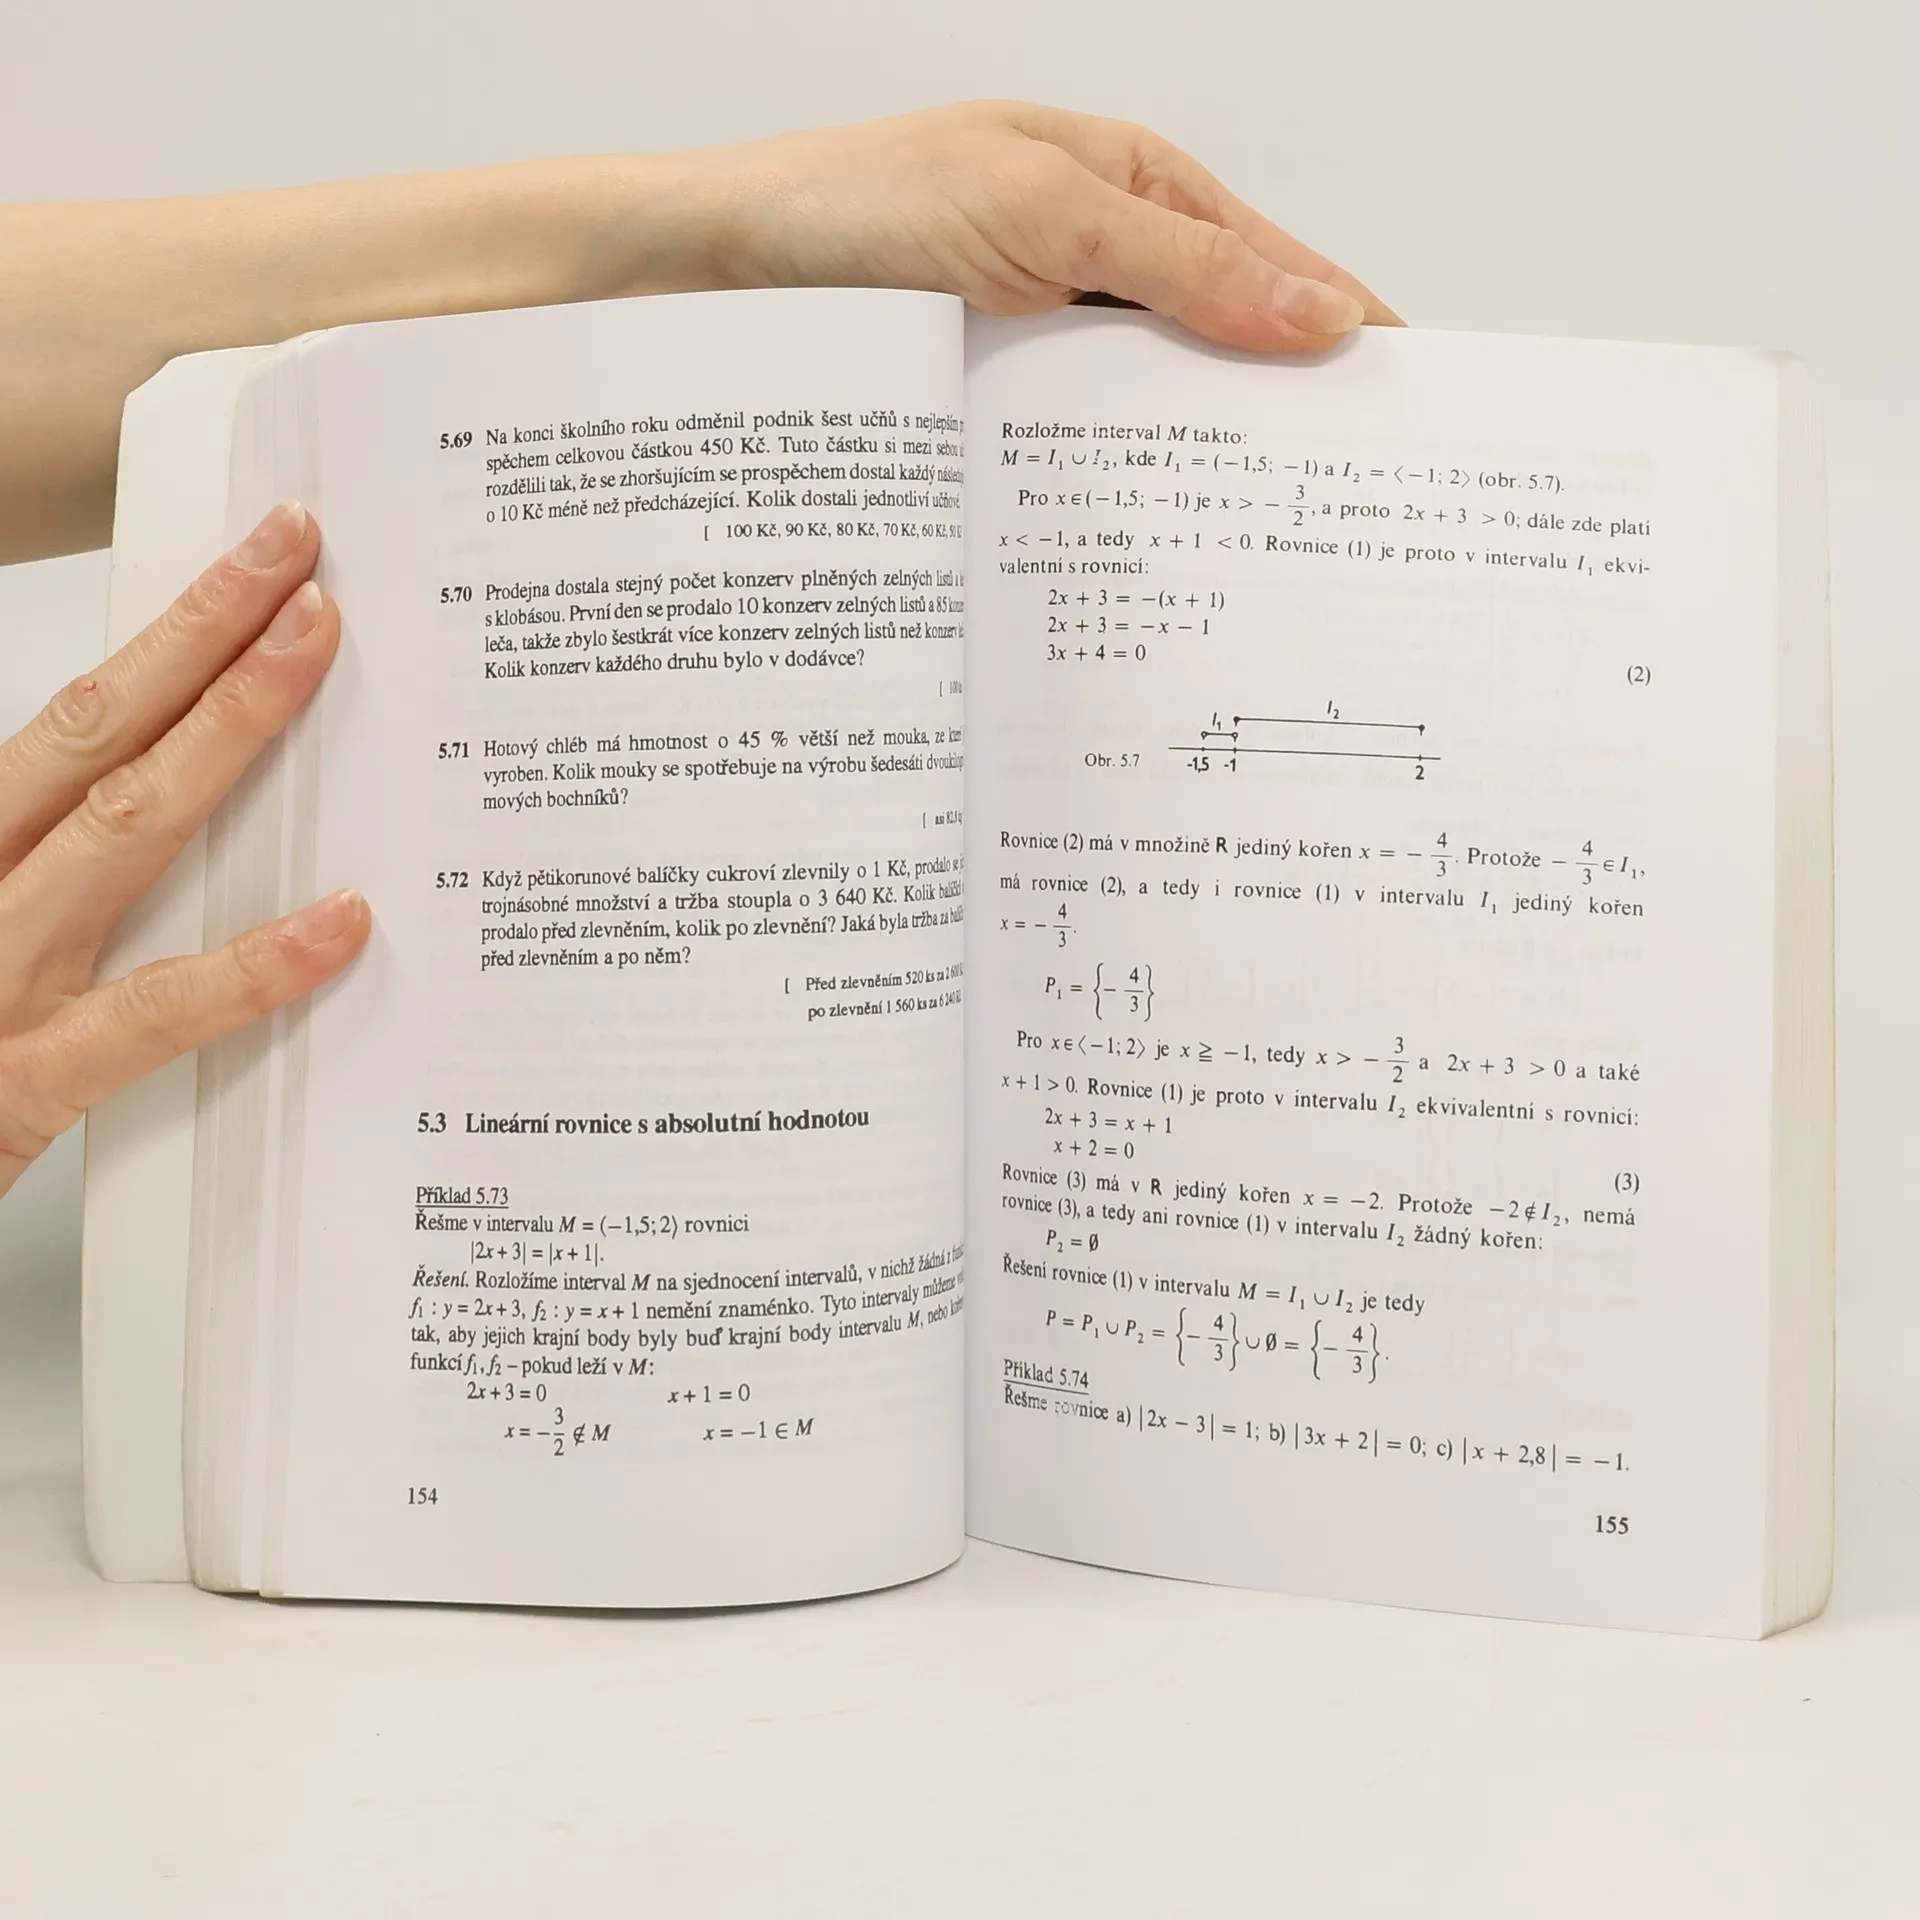 5.69 Na konci školního roku odměnil podnik šest učňů s nejlepším
spěchem celkovou částkou 450 Kč. Tuto částku si mezi sebou
rozdělili tak, že se zhoršujícím se prospěchem dostal každý
o 10 Kč méně než předcházející. Kolik dostali jednotliví učňové.
[ 100 Kč, 90 Kč, 80 Kč, 70 Kč, 60 Kč, 50 Kč
5.70 Prodejna dostala stejný počet konzerv plněných zelných listů
s klobásou. První den se prodalo 10 konzerv zelných listů a 85
leča, takže zbylo šestkrát více konzerv zelných listů než konzerv
Kolik konzerv každého druhu bylo v dodávce?
[ 100
5.71 Hotový chléb má hmotnost o 45 % větší než mouka, ze
vyroben. Kolik mouky se spotřebuje na výrobu šedesáti
mových bochníků?
[ asi 82,8
5.72 Když pětikorunové balíčky cukroví zlevnily o 1 Kč, prodalo se
trojnásobné množství a tržba stoupla o 3 640 Kč. Kolik
prodalo před zlevněním, kolik po zlevnění? Jaká byla tržba za
před zlevněním a po něm?
[ Před zlevněním 520 ks za 2 600
po zlevnění 1 560 ks za 6 240 Kč
5.3 Lineární rovnice s absolutní hodnotou
Příklad 5.73
Řešme v intervalu M = (−1,5; 2⟩ rovnici
|2x + 3| = |x + 1|.
Řešení. Rozložíme interval M na sjednocení intervalů, v nichž žádná z
f₁ : y = 2x + 3, f₂ : y = x + 1 nemění znaménko. Tyto intervaly můžeme
tak, aby jejich krajní body byly buď krajní body intervalu M, nebo
funkcí f₁, f₂ – pokud leží v M:
2x + 3 = 0 x + 1 = 0
x = −3/2 ∉ M x = −1 ∈ M
154
Rozložme interval M takto:
M = I₁ ∪ I₂, kde I₁ = (−1,5; −1) a I₂ = ⟨−1; 2⟩ (obr. 5.7).
Pro x ∈ (−1,5; −1) je x > −3/2, a proto 2x + 3 > 0; dále zde platí
x < −1, a tedy x + 1 < 0. Rovnice (1) je proto v intervalu I₁ ekvi-
valentní s rovnicí:
2x + 3 = −(x + 1)
2x + 3 = −x − 1
3x + 4 = 0
(2)
I₁ I₂
Obr. 5.7 -1,5 -1 2
Rovnice (2) má v množině R jediný kořen x = −4/3. Protože −4/3 ∈ I₁,
má rovnice (2), a tedy i rovnice (1) v intervalu I₁ jediný kořen
x = −4/3.
P₁ = {−4/3}
Pro x ∈ ⟨−1; 2⟩ je x ≧ −1, tedy x > −3/2 a 2x + 3 > 0 a také
x + 1 > 0. Rovnice (1) je proto v intervalu I₂ ekvivalentní s rovnicí:
2x + 3 = x + 1
x + 2 = 0
(3)
Rovnice (3) má v R jediný kořen x = −2. Protože −2 ∉ I₂, nemá
rovnice (3), a tedy ani rovnice (1) v intervalu I₂ žádný kořen:
P₂ = ∅
Řešení rovnice (1) v intervalu M = I₁ ∪ I₂ je tedy
P = P₁ ∪ P₂ = {−4/3} ∪ ∅ = {−4/3}.
Příklad 5.74
Řešme rovnice a) |2x − 3| = 1; b) |3x + 2| = 0; c) |x + 2,8| = −1.
155